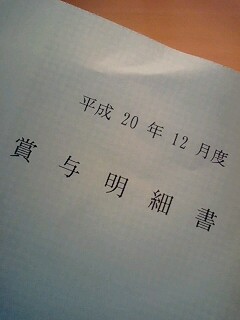 平成 20 年 12 月度
賞与明細書